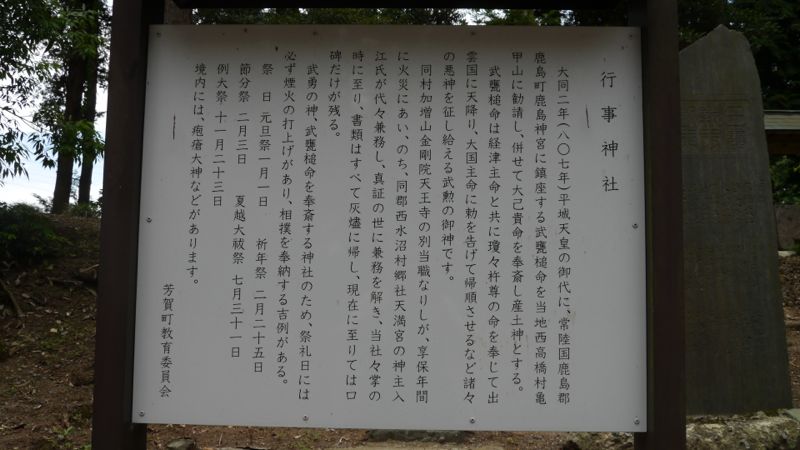 行事神社
大同二年(八〇七年)平城天皇の御代に、常陸国鹿島郡
鹿島町鹿島神宮に鎮座する武甕槌命を当地西高橋村亀
甲山に勧請し、併せて大己貴命を奉斎し産土神とする。
武甕槌命は経津主命と共に瓊々杵尊の命を奉じて出
雲国に天降り、大国主命に勅を告げて帰順させるなど諸々
の悪神を征し給える武勲の御神です。
同村加増山金剛院天王寺の別当職なりしが、享保年間
に火災にあい、のち、同郡西水沼村郷社天満宮の神主入
江氏が代々兼務し、真証の世に兼務を解き、当社々掌の
時に至り、書類はすべて灰燼に帰し、現在に至りては口
碑だけが残る。
武勇の神、武甕槌命を奉斎する神社のため、祭礼日には
必ず煙火の打上げがあり、相撲を奉納する吉例がある。
祭 日 元旦祭一月一日 祈年祭 二月二十五日
節分祭 二月三日 夏越大祓祭 七月三十一日
例大祭 十一月二十三日
境内には、疱瘡大神などがあります。
芳賀町教育委員会